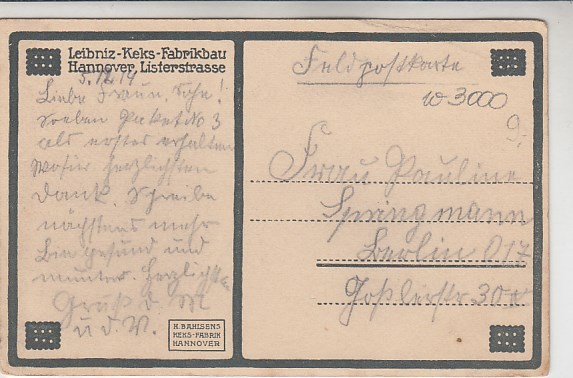 Leibniz-Keks-Fabrikbau
Hannover, Listerstrasse
5.12.14
Liebe Frau u. Sohn!
Soeben Paket No 3
als erstes erhalten
wofür herzlichsten
Dank. Schreibe
nächstens mehr
bin gesund und
munter. Herzlichste
Gruß d. M
u. d. V.
H. BAHLSENS
KEKS-FABRIK
HANNOVER
Feldpostkarte
3000
Frau Pauline
Springmann
Berlin O17
Goßlerstr. 30